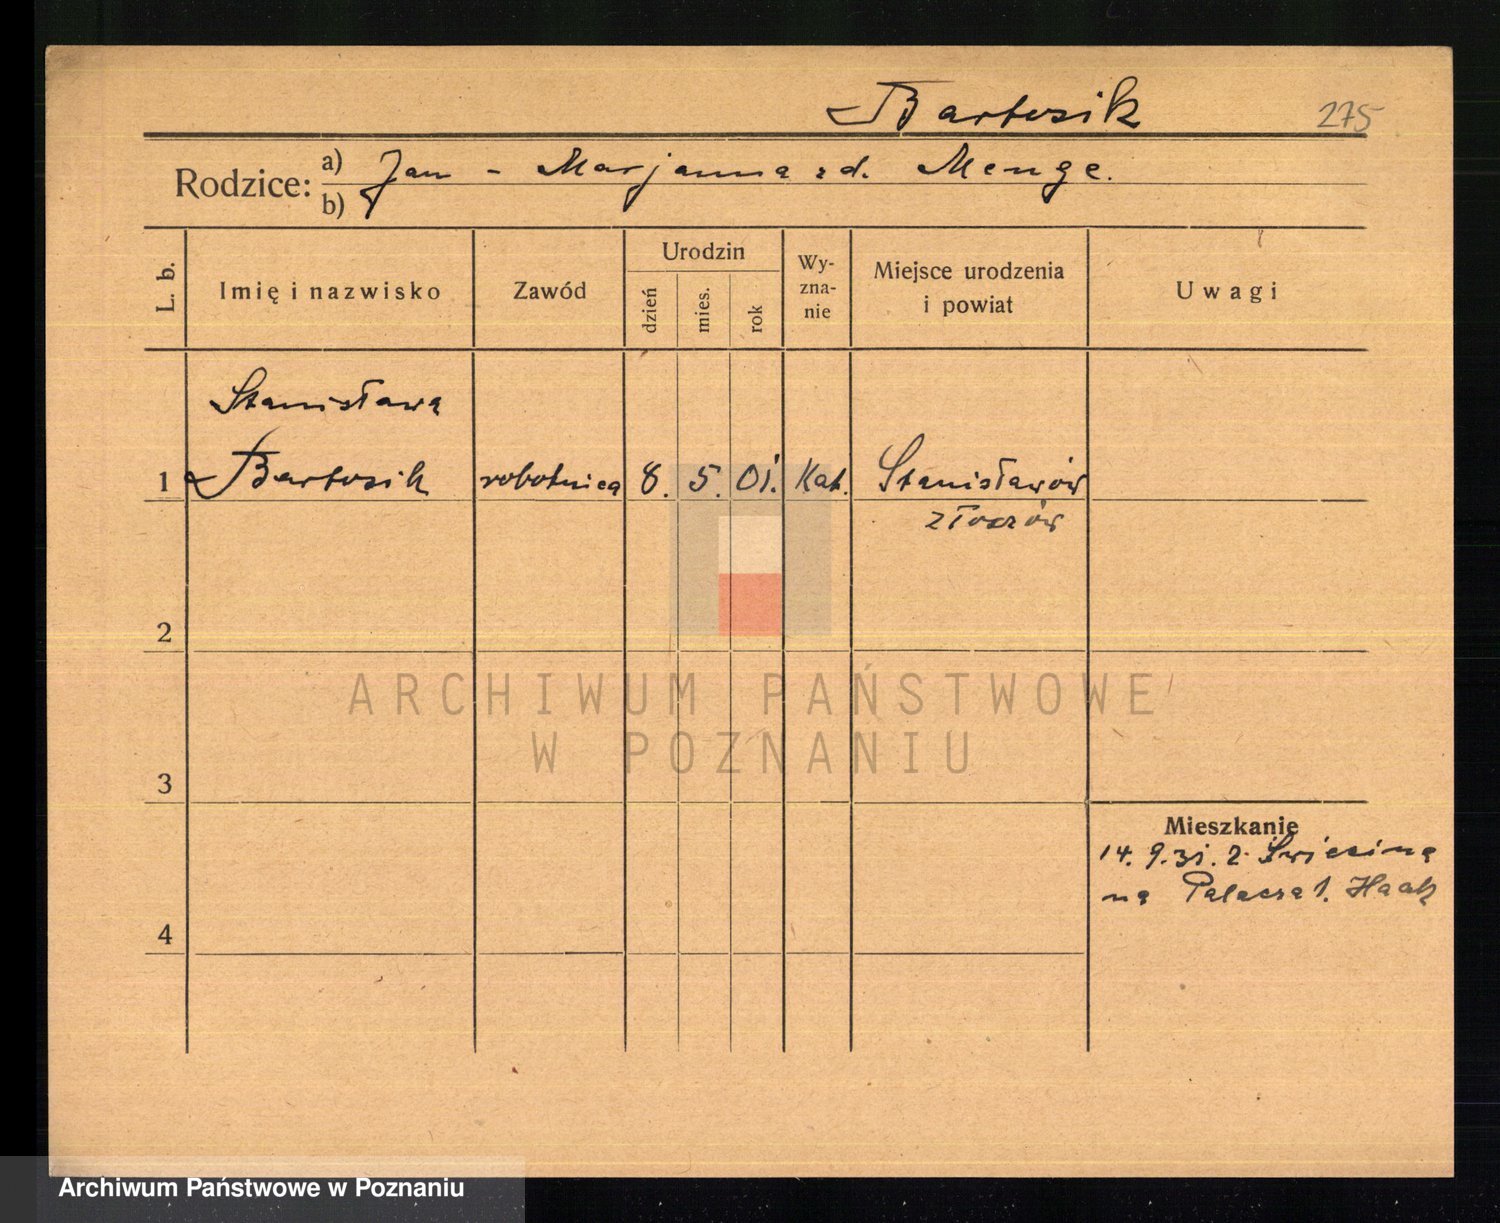 Bartosik 275
Rodzice: a) Jan - Marjanna zd. Menge.
b)
L. b. Imię i nazwisko Zawód Urodzin dzień mies. rok Wy-zna-nie Miejsce urodzenia i powiat Uwagi
Stanisława
1 Bartosik robotnica 8. 5. 01. Kat. Stanisławów
Złoczów
2
ARCHIWUM PAŃSTWOWE
W POZNANIU
3
Mieszkanie
14. 9. 31. z
na Palacza 1. Haak
4
Archiwum Państwowe w Poznaniu